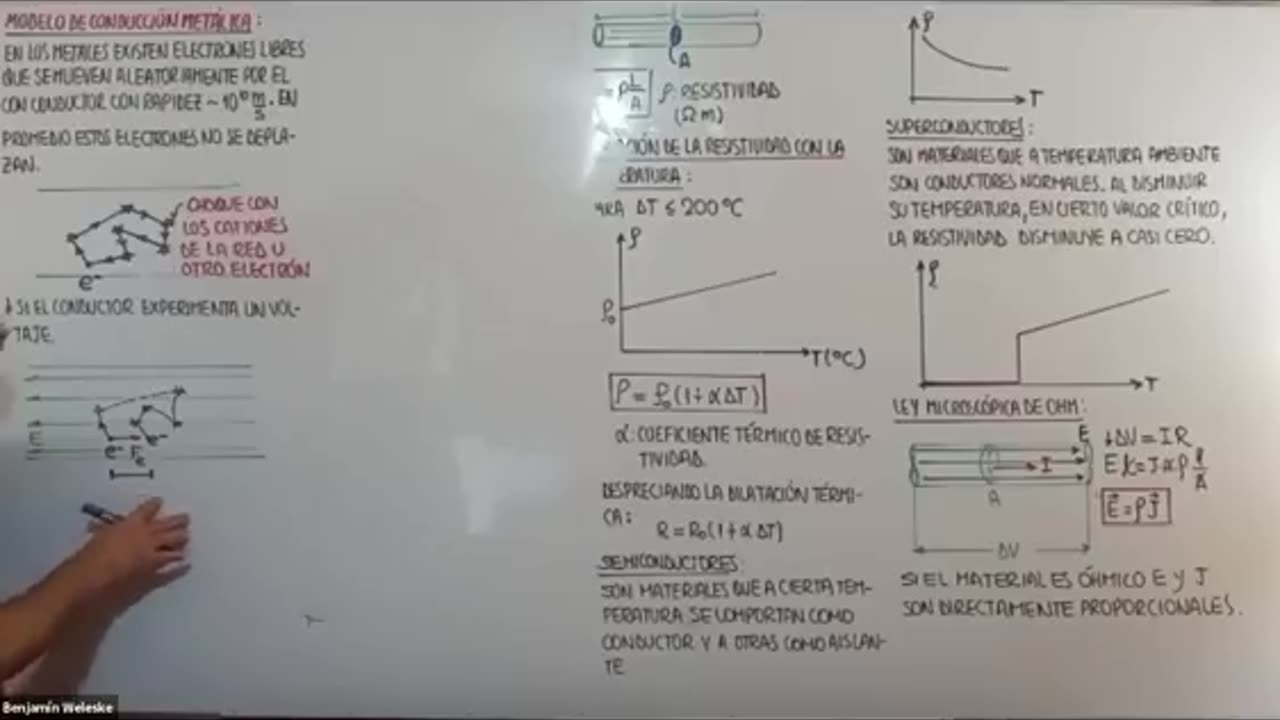 MODELO DE CONDUCCIÓN METÁLICA:
EN LOS METALES EXISTEN ELECTRONES LIBRES
QUE SE MUEVEN ALEATORIAMENTE POR EL
CON CONDUCTOR CON RAPIDEZ ~ 10⁶ m/s. EN
PROMEDIO ESTOS ELECTRONES NO SE DEPLA-
ZAN.
CHOQUE CON
LOS CATIONES
DE LA RED U
OTRO ELECTRÓN
e⁻
SI EL CONDUCTOR EXPERIMENTA UN VOL-
TAJE.
E
e⁻ Fe e⁻
A
= ρ L/A ρ: RESISTIVIDAD
(Ω m)
CIÓN DE LA RESISTIVIDAD CON LA
ERATURA:
ARA ΔT ≤ 200 °C
ρ
ρ₀
T(°C)
ρ = ρ₀(1+αΔT)
α: COEFICIENTE TÉRMICO DE RESIS-
TIVIDAD.
DESPRECIANDO LA DILATACIÓN TÉRMI-
CA:
R = R₀(1+αΔT)
SEMICONDUCTORES:
SON MATERIALES QUE A CIERTA TEM-
PERATURA SE COMPORTAN COMO
CONDUCTOR Y A OTRAS COMO AISLAN-
TE
ρ
T
SUPERCONDUCTORES:
SON MATERIALES QUE A TEMPERATURA AMBIENTE
SON CONDUCTORES NORMALES. AL DISMINUIR
SU TEMPERATURA, EN CIERTO VALOR CRÍTICO,
LA RESISTIVIDAD DISMINUYE A CASI CERO.
ρ
T
LEY MICROSCÓPICA DE OHM:
E
I
A
ΔV
ΔV = IR
E⃗ = ρJ⃗
SI EL MATERIAL ES ÓHMICO E Y J
SON DIRECTAMENTE PROPORCIONALES.
Benjamín Weleske